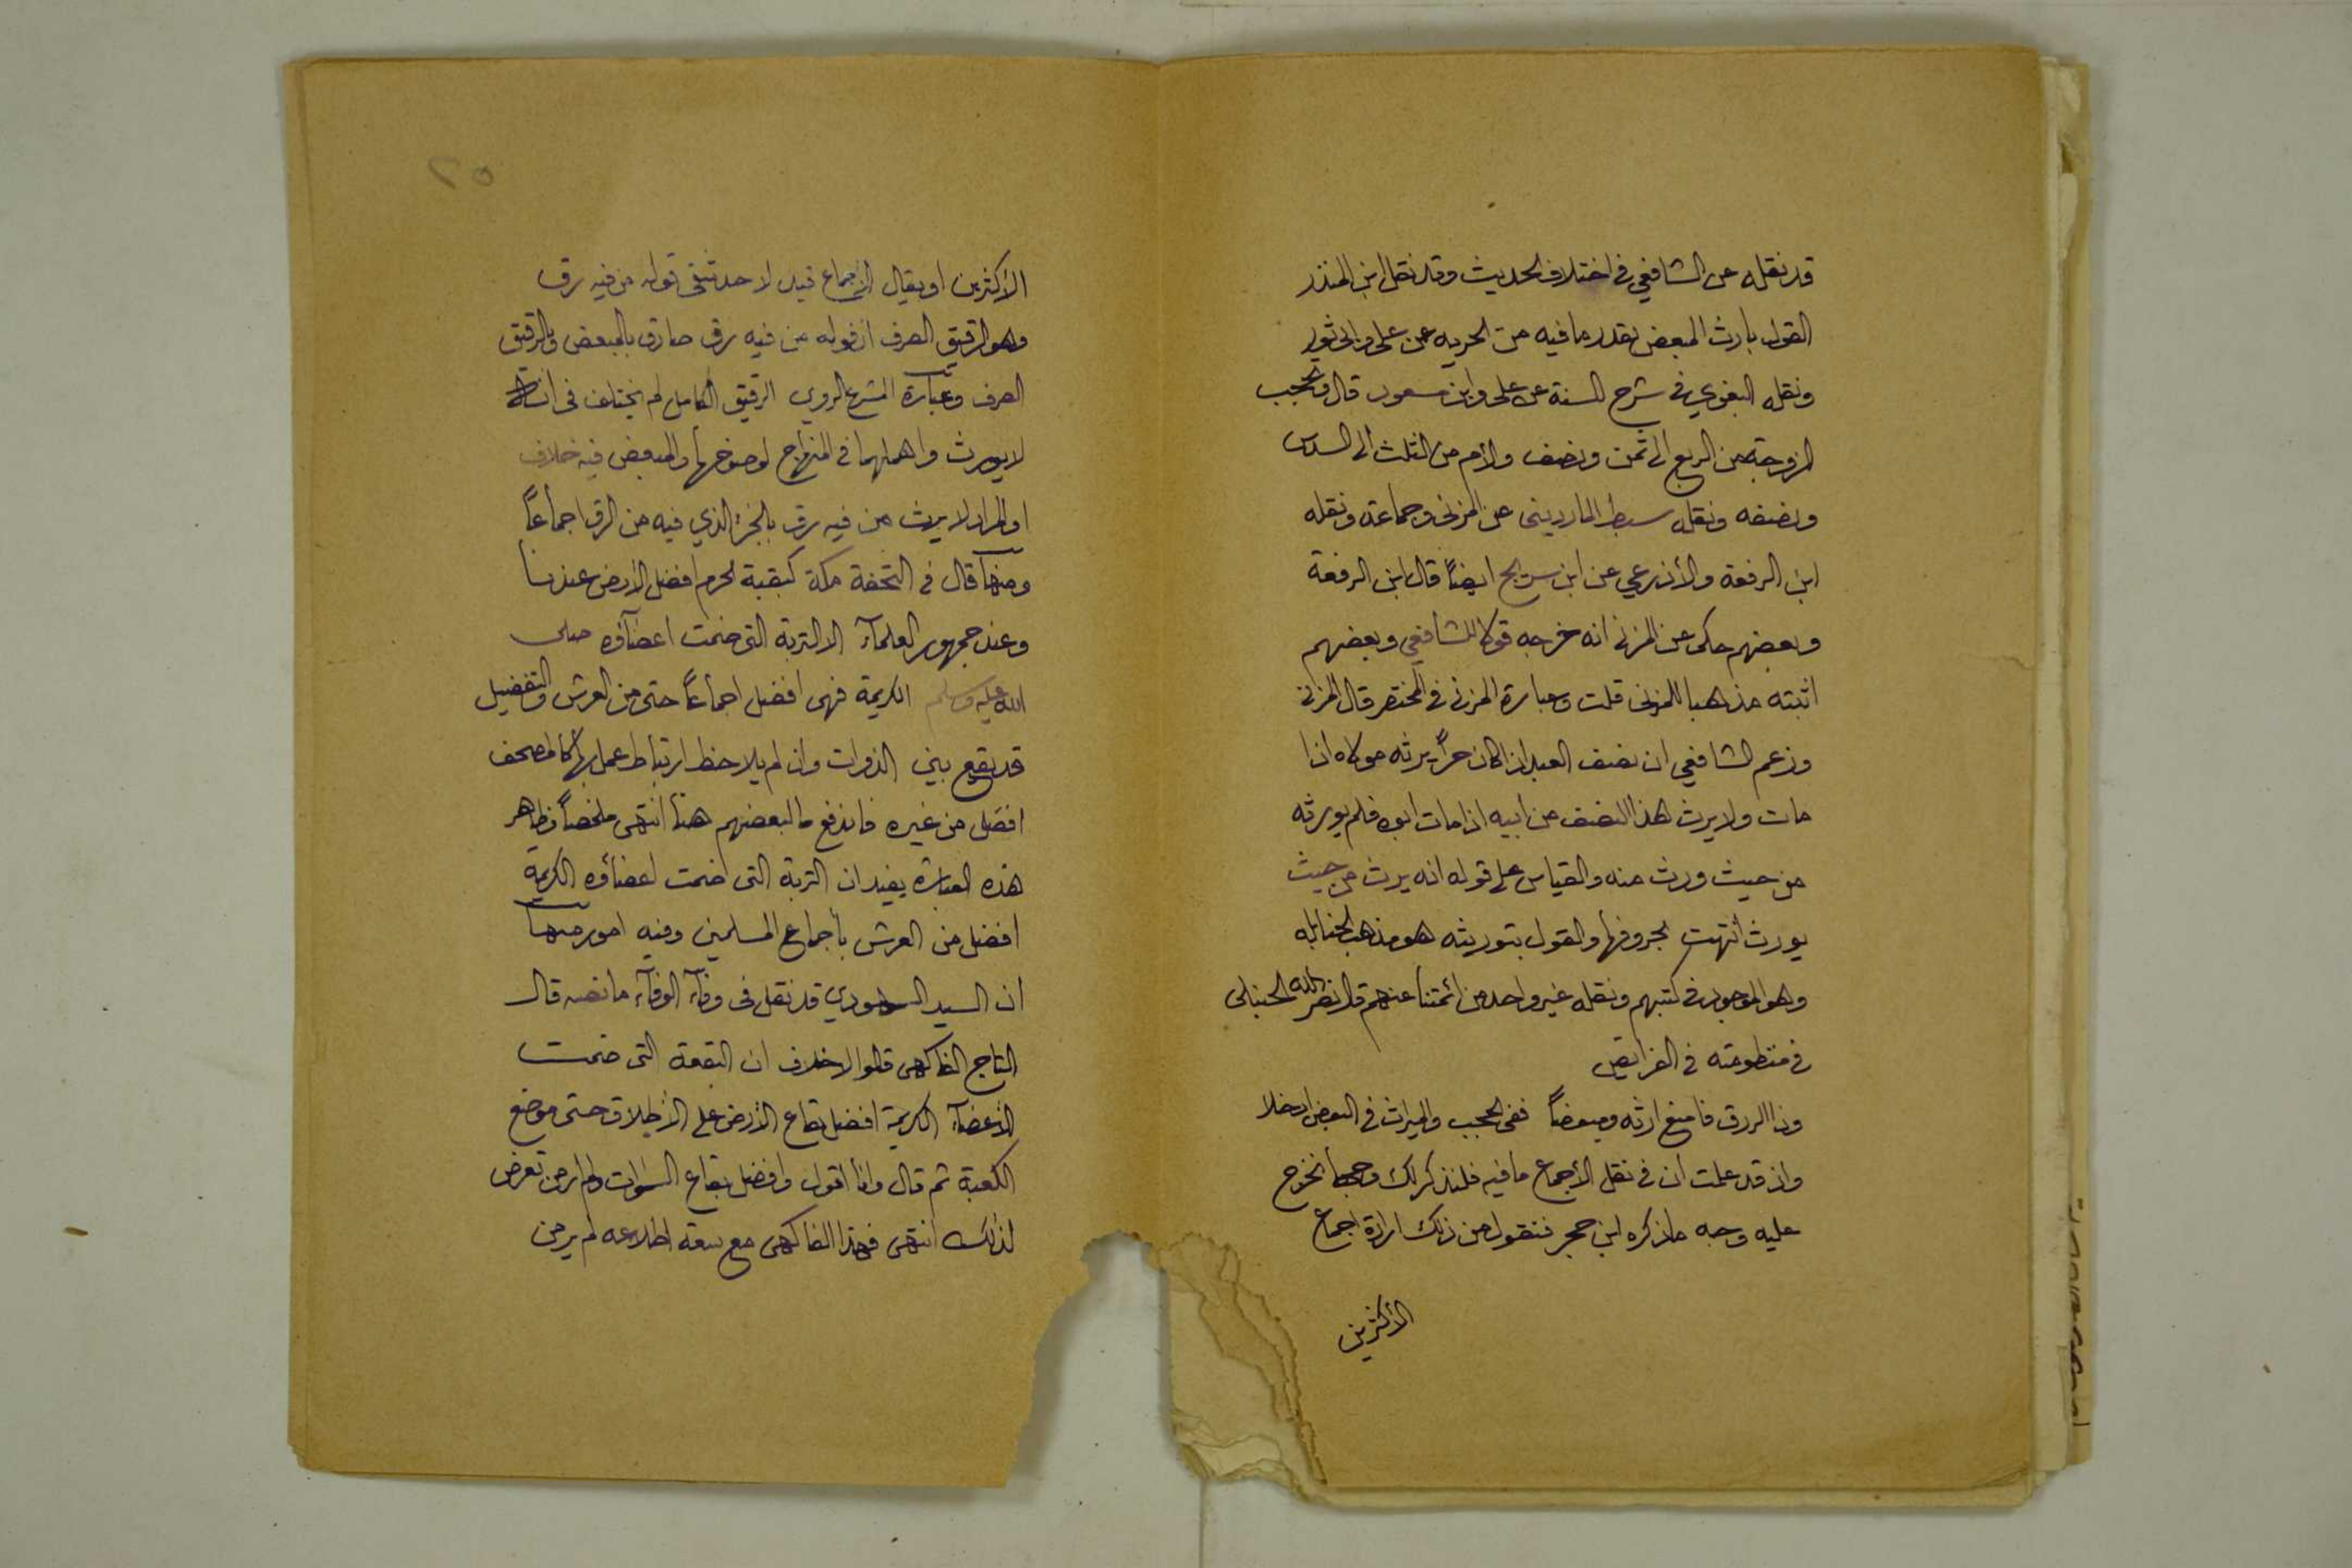 قد نقله عن الشافعي في اختلاف الحديث وقد نقل ابن المنذر
القول بارث المبعض بقدر ما فيه من الحريه عن علي وابي ثور
ونقله البغوي في شرح السنة عن علي وابن مسعود قال وتحجب
الزوجة من الربع الى ثمن ونصف والأم من الثلث الى السدس
ونصفه ونقله سبط المارديني عن المزني وجماعة ونقله
ابن الرفعة والأذرعي عن ابن سريج ايضاً قال ابن الرفعة
وبعضهم حكى عن المزني انه خرجه قولا للشافعي وبعضهم
اثبته مذهبا للمزني قلت وعبارة المزني في المختصر قال المزني
وزعم الشافعي ان نصف العبد اذا كان حراً يرثه مولاه اذا
مات ولا يرث هذا النصف من ابيه اذا مات ابوه فلم يورثه
من حيث ورث منه والقياس على قوله انه يرث من حيث
يورث انتهت بحروفها والقول بتوريثه هو مذهب الحنابله
وهو الموجود في كتبهم ونقله غير واحد من ائمتنا عنهم قال نصر الله الحنبلي
في منظومته في الفرايض
وذا الرق فامنع ارثه ومبعضاً ففي الحجب والميراث في البعض ادخلا
واذ قد علمت ان في نقل الأجماع ما فيه فلنذكر لك وجها نخرج
عليه وجه ما ذكره ابن حجر فنقول من ذلك ارادة اجماع
الأكثرين
٢٥
الأكثرين او يقال الأجماع قيد لا حد شقي قوله من فيه رق
وهو الرقيق الصرف اذ قوله من فيه رق صادق بالمبعض والرقيق
الصرف وعبارة المشرع الروي الرقيق الكامل لم يختلف في انه
لا يورث واهملهما في المنهاج لوضوحها والمبعض فيه خلاف
او المراد لا يرث من فيه رق بالجزء الذي فيه من الرق اجماعاً
ومنها قال في التحفة مكة كبقية الحرم افضل الارض عندنا
وعند جمهور العلمآء الا التربة التي ضمت اعضآؤه صلى
الله عليه وسلم الكريمة فهي افضل اجماعاً حتى من العرش والتفضيل
قد يقع بين الذوات وان لم يلاحظ ارتباط عمل بها كالمصحف
افضل من غيره فاندفع ما لبعضهم هنا انتهى ملخصاً وظاهر
هذه العبارة يفيد ان التربة التي ضمت اعضائه الكريمة
افضل من العرش بأجماع المسلمين وفيه امور منها
ان السيد السمهودي قد نقل في وفآء الوفآء ما نصه قال
التاج الفاكهي قالوا لا خلاف ان البقعة التي ضمت
الأعضآء الكريمة افضل بقاع الأرض على الأطلاق حتى موضع
الكعبة ثم قال وانا اقول وافضل بقاع السموات ولم ار من تعرض
لذلك انتهى فهذا الفاكهي مع سعة اطلاعه لم ير من